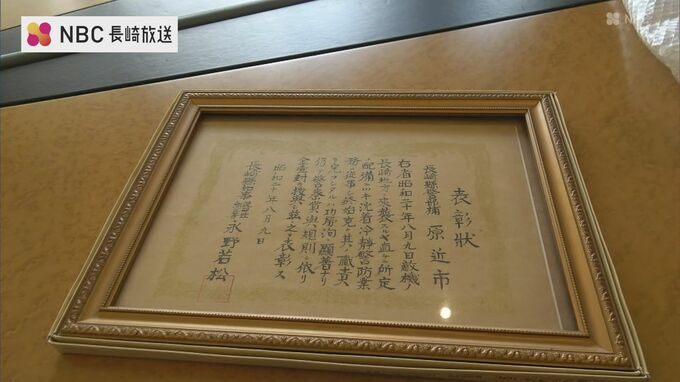 NBC 長崎放送
N
表彰状
長崎縣警部補 原近市
右者昭和二十年八月九日敵機ノ
長崎地方ニ來襲スルヤ直ニ所定
ノ配備ニツキ沈着冷静警防業
務ニ從事シ終始克ク其ノ職責ヲ
完フシタルハ功勞洵ニ顯著ナリ
仍テ警察賞與規則ニ依リ
金壹封ヲ授與シ茲ニ之ヲ表彰ス
昭和二十年八月九日
長崎縣知事 永野若松